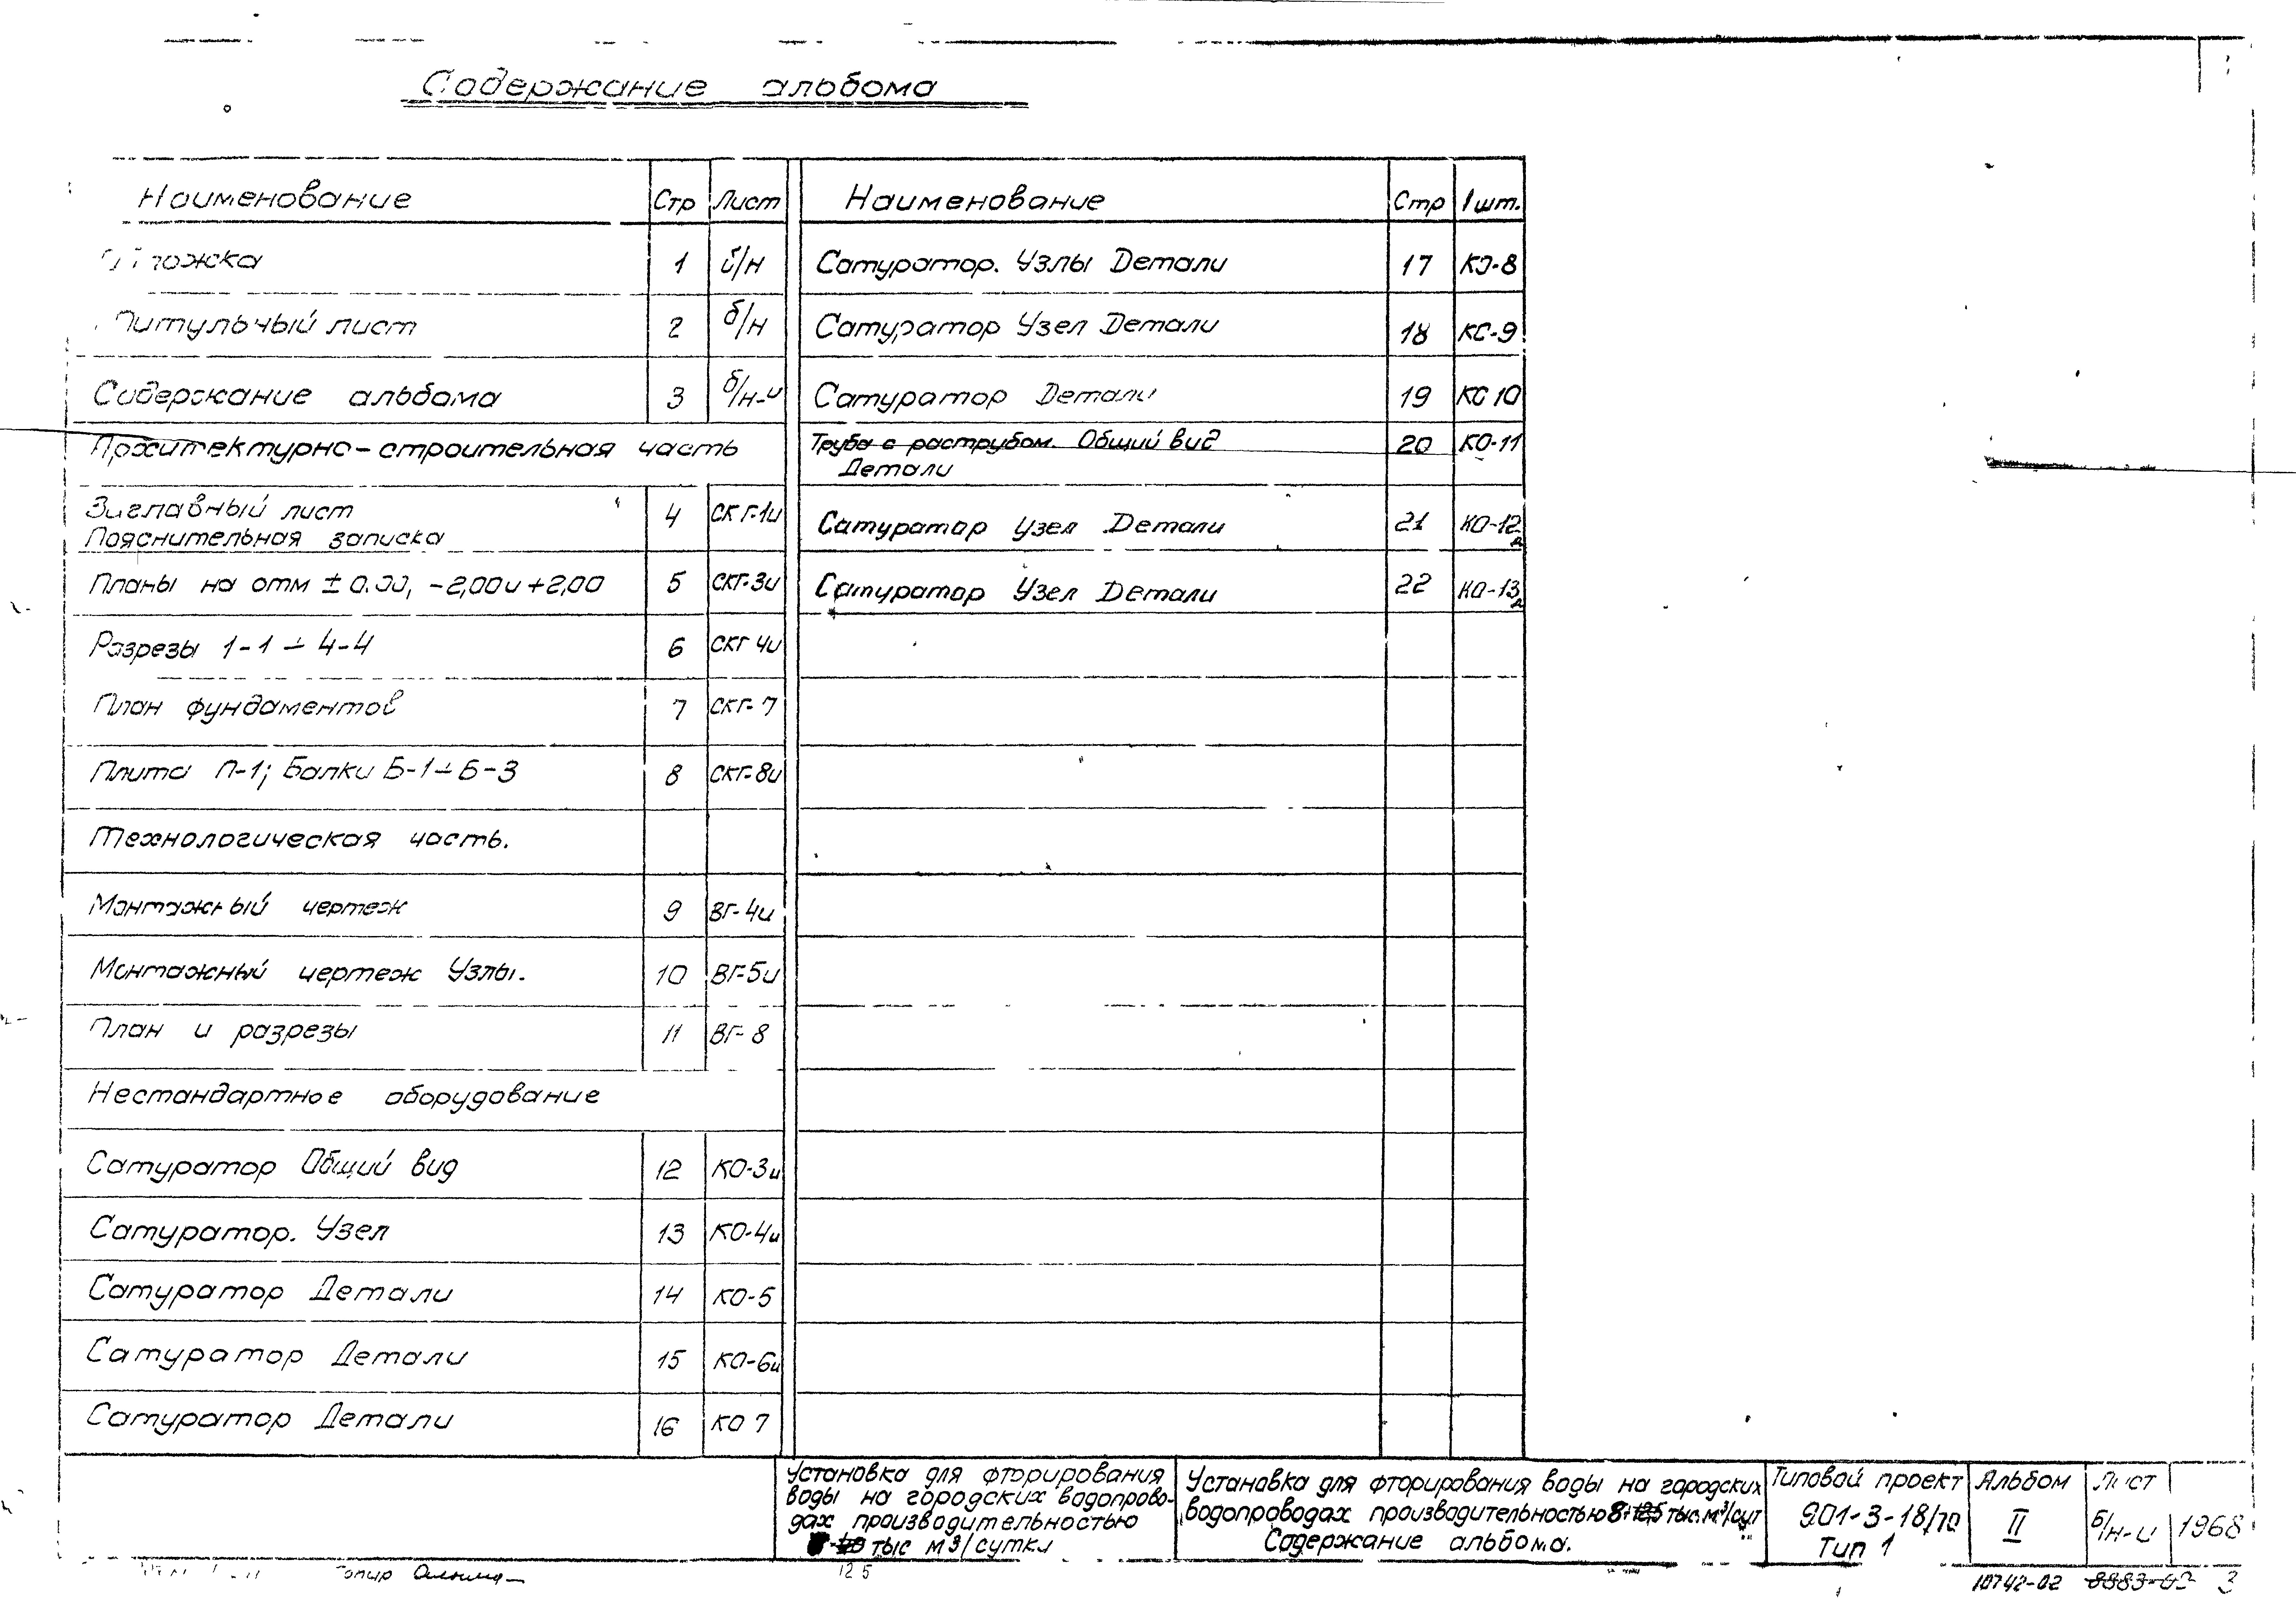 Содержание альбома
Наименование Стр Лист
1 б/н
Титульный лист 2 б/н
Содержание альбома 3 б/н-и
Архитектурно-строительная часть
Заглавный лист
Пояснительная записка 4 СКГ-1и
Планы на отм ± 0.00, -2,00 и +2,00 5 СКГ-3и
Разрезы 1-1 ÷ 4-4 6 СКГ 4и
План фундаментов 7 СКГ-7
Плита П-1; Балки Б-1 ÷ Б-3 8 СКГ-8и
Технологическая часть.
Монтажный чертеж 9 ВГ-4и
Монтажный чертеж Узлы. 10 ВГ-5и
План и разрезы 11 ВГ-8
Нестандартное оборудование
Сатуратор Общий вид 12 КО-3и
Сатуратор. Узел 13 КО-4и
Сатуратор Детали 14 КО-5
Сатуратор Детали 15 КО-6и
Сатуратор Детали 16 КО 7
Наименование Стр 1шт.
Сатуратор. Узлы Детали 17 КО-8
Сатуратор Узел Детали 18 КО-9
Сатуратор Детали 19 КО 10
Труба с раструбом. Общий вид 20 КО-11
Детали
Сатуратор Узел Детали 21 КО-12
Сатуратор Узел Детали 22 КО-13
Установка для фторирования
воды на городских водопрово-
дах производительностью
тыс м3/сутки
Установка для фторирования воды на городских
водопроводах производительностью 8÷12,5 тыс. м³/сут
Содержание альбома.
Типовой проект
901-3-18/70
Тип 1
Альбом
II
Лист
б/н-и
1968
Копир
12 5
10742-02 8883-02 3